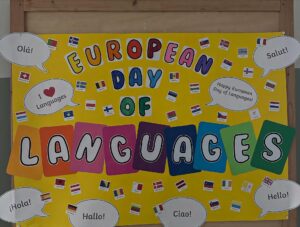 Olá!
Salut!
EUROPEAN
DAY
OF
LANGUAGES
I ❤ Languages
Happy European
Day of Languages!
¡Hola!
Hallo!
Ciao!
Hello!